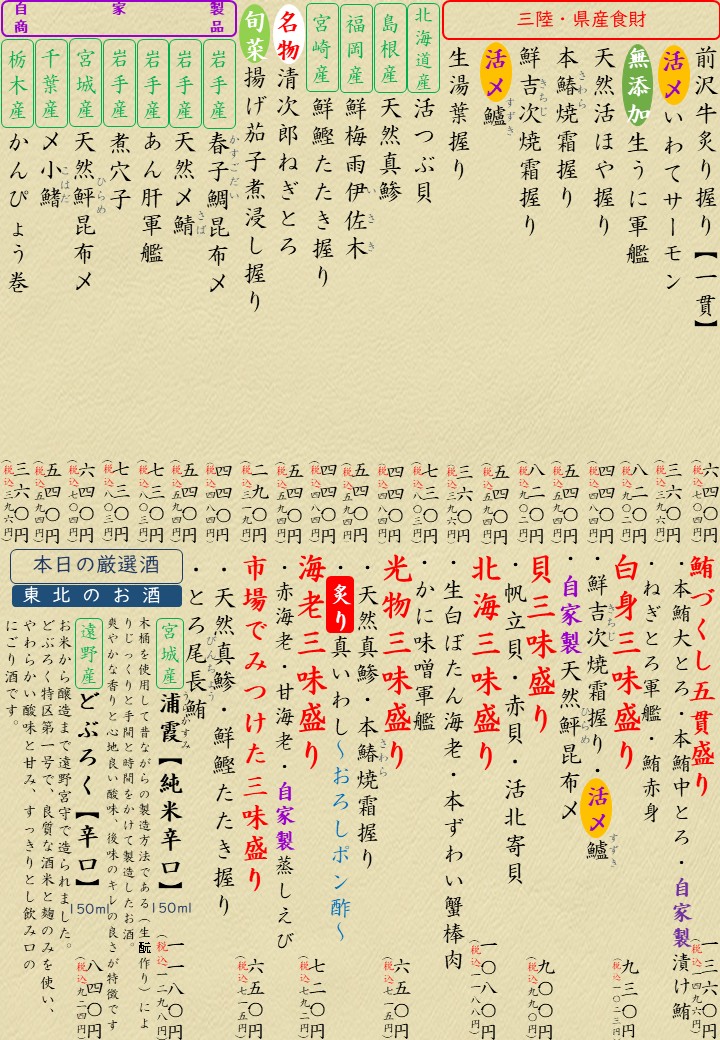 三陸・県産食財
前沢牛炙り握り【一貫】
六四〇円
(税込七〇四円)
活〆いわてサーモン
三六〇円
(税込三九六円)
無添加生うに軍艦
八二〇円
(税込九〇二円)
天然活ほや握り
四四〇円
(税込四八四円)
本鰆焼霜握り
さわら
五四〇円
(税込五九四円)
鮮吉次焼霜握り
きちじ
八二〇円
(税込九〇二円)
活〆鱸
すずき
五四〇円
(税込五九四円)
生湯葉握り
三六〇円
(税込三九六円)
北海道産
活つぶ貝
七三〇円
(税込八〇三円)
島根産
天然真鯵
四四〇円
(税込四八四円)
福岡産
鮮梅雨伊佐木
いさき
五四〇円
(税込五九四円)
宮崎産
鮮鰹たたき握り
四四〇円
(税込四八四円)
名物
清次郎ねぎとろ
五四〇円
(税込五九四円)
旬菜
揚げ茄子煮浸し握り
二九〇円
(税込三一九円)
自家製商品
岩手産
春子鯛昆布〆
かすごだい
四四〇円
(税込四八四円)
岩手産
天然〆鯖
さば
五四〇円
(税込五九四円)
岩手産
あん肝軍艦
七三〇円
(税込八〇三円)
岩手産
煮穴子
七三〇円
(税込八〇三円)
宮城産
天然鮃昆布〆
ひらめ
六四〇円
(税込七〇四円)
千葉産
〆小鰭
こはだ
五四〇円
(税込五九四円)
栃木産
かんぴょう巻
三六〇円
(税込三九六円)
鮪づくし五貫盛り
・本鮪大とろ・本鮪中とろ・自家製漬け鮪
・ねぎとろ軍艦・鮪赤身
一三六〇円
(税込一四九六円)
白身三味盛り
・鮮吉次焼霜握り・活〆鱸
きちじ
すずき
・自家製天然鮃昆布〆
ひらめ
九三〇円
(税込一〇二三円)
貝三味盛り
・帆立貝・赤貝・活北寄貝
九〇〇円
(税込九九〇円)
北海三味盛り
・生白ぼたん海老・本ずわい蟹棒肉
・かに味噌軍艦
一〇八〇円
(税込一一八八円)
光物三味盛り
・天然真鯵・本鰆焼霜握り
さわら
・炙り真いわし～おろしポン酢～
六五〇円
(税込七一五円)
海老三味盛り
・赤海老・甘海老・自家製蒸しえび
七二〇円
(税込七九二円)
市場でみつけた三味盛り
・天然真鯵・鮮鰹たたき握り
・とろ尾長鮪
びんちょう
六五〇円
(税込七一五円)
本日の厳選酒
東北のお酒
宮城産
浦霞【純米辛口】
うらかすみ
150ml
一一八〇円
(税込一二九八円)
木桶を使用して昔ながらの製造方法である(生酛作り)によ
りじっくりと手間と時間をかけて製造したお酒。
爽やかな香りと心地良い酸味、後味のキレの良さが特徴です
遠野産
どぶろく【辛口】
150ml
八四〇円
(税込九二四円)
お米から醸造まで遠野宮守で造られました。
どぶろく特区第一号で、良質な酒米と麹のみを使い、
やわらかい酸味と甘み、すっきりとし飲み口の
にごり酒です。